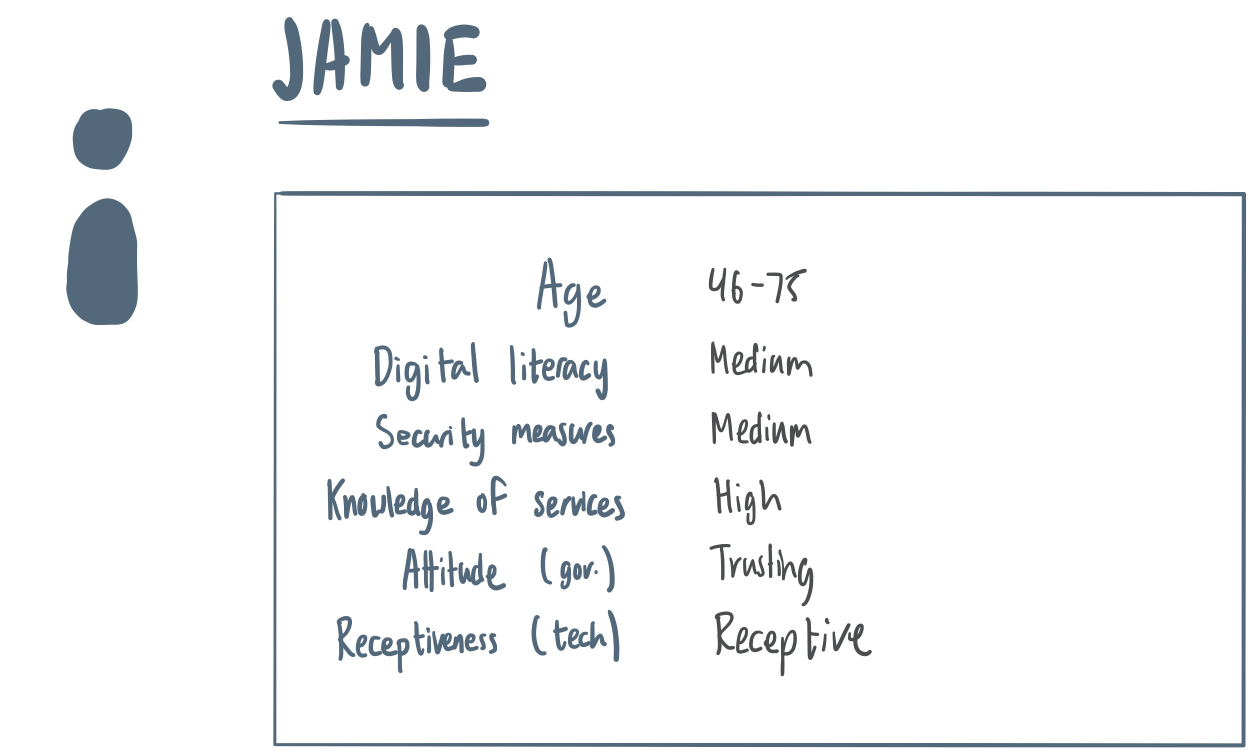 JAMIE
Age 46-75
Digital literacy Medium
Security measures Medium
Knowledge of services High
Attitude (gov.) Trusting
Receptiveness (tech) Receptive